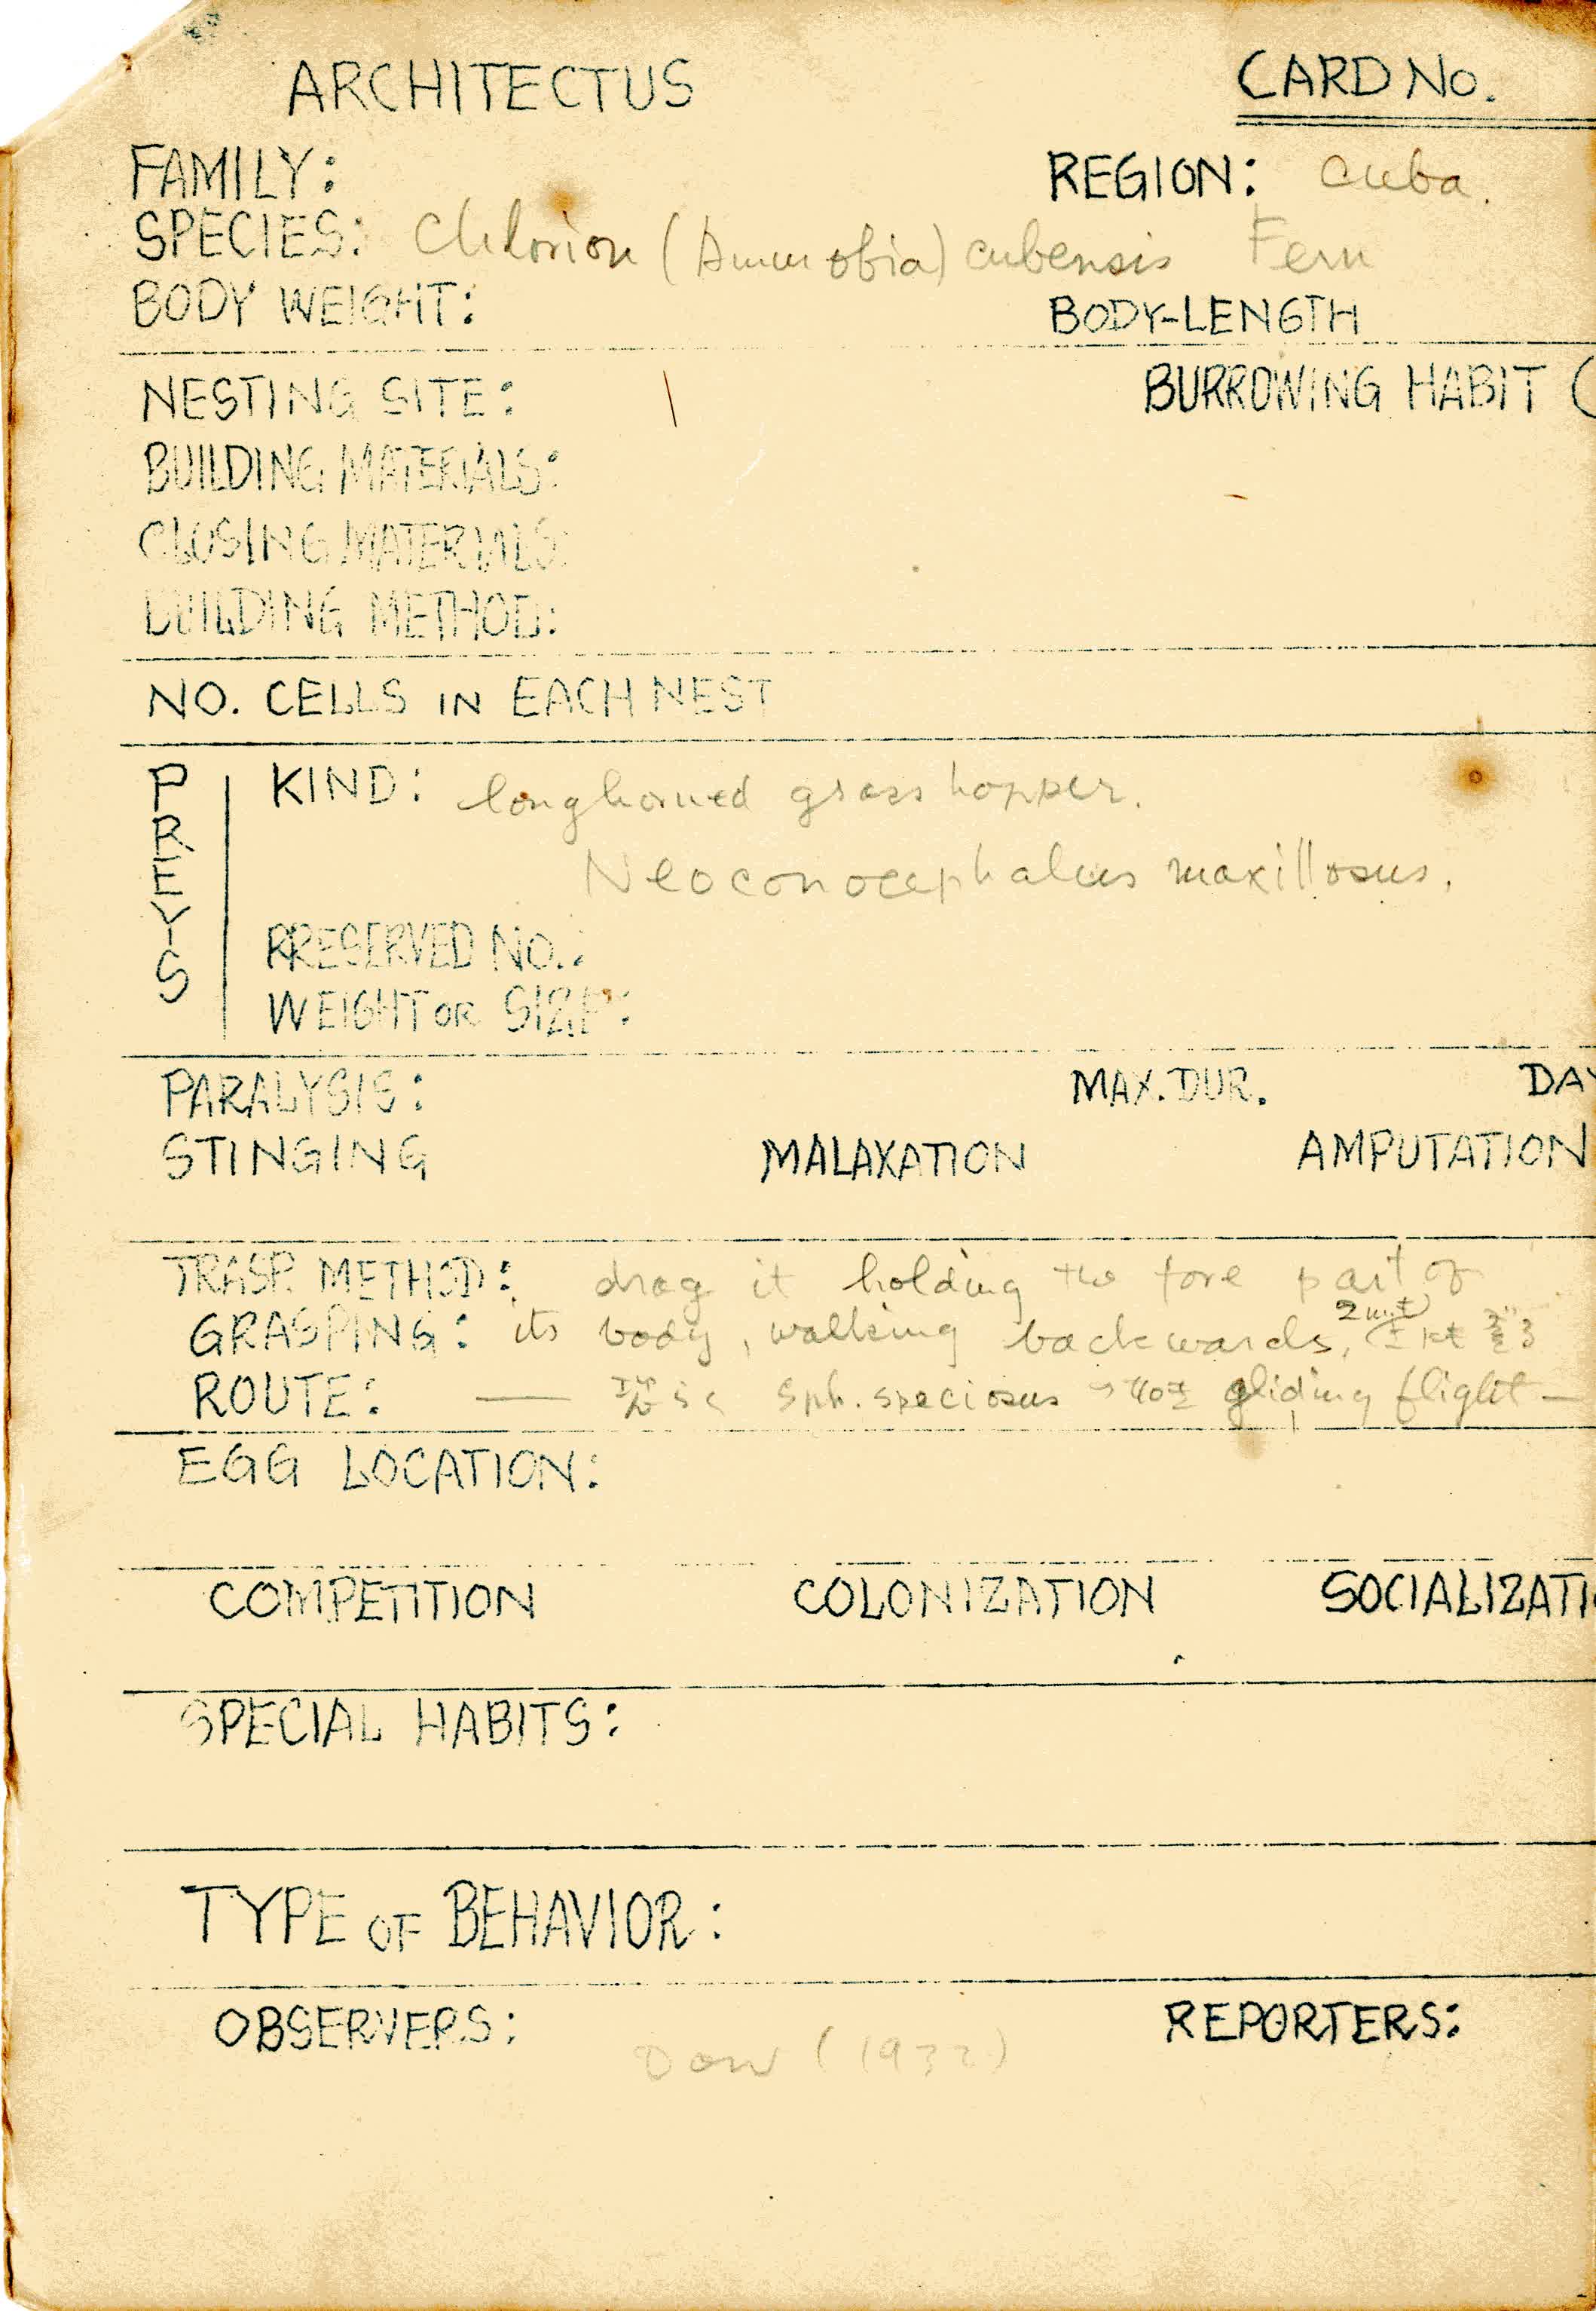 ARCHITECTUS CARD NO.
FAMILY: REGION: Cuba.
SPECIES: Chlorion (Ammobia) cubensis Fern
BODY WEIGHT: BODY-LENGTH
NESTING SITE: BURROWING HABIT (
BUILDING MATERIALS:
CLOSING MATERIALS:
BUILDING METHOD:
NO. CELLS IN EACH NEST
PREYS
KIND: longhorned grasshopper.
Neoconocephalus maxillosus.
PRESERVED NO.:
WEIGHT OR SIZE:
PARALYSIS: MAX. DUR. DAY
STINGING MALAXATION AMPUTATION
TRASP. METHOD: drag it holding the fore part of
GRASPING: its body, walking backwards,
ROUTE: — Sph. speciosus gliding flight —
EGG LOCATION:
COMPETITION COLONIZATION SOCIALIZATI
SPECIAL HABITS:
TYPE OF BEHAVIOR:
OBSERVERS: REPORTERS:
Dow (1932)